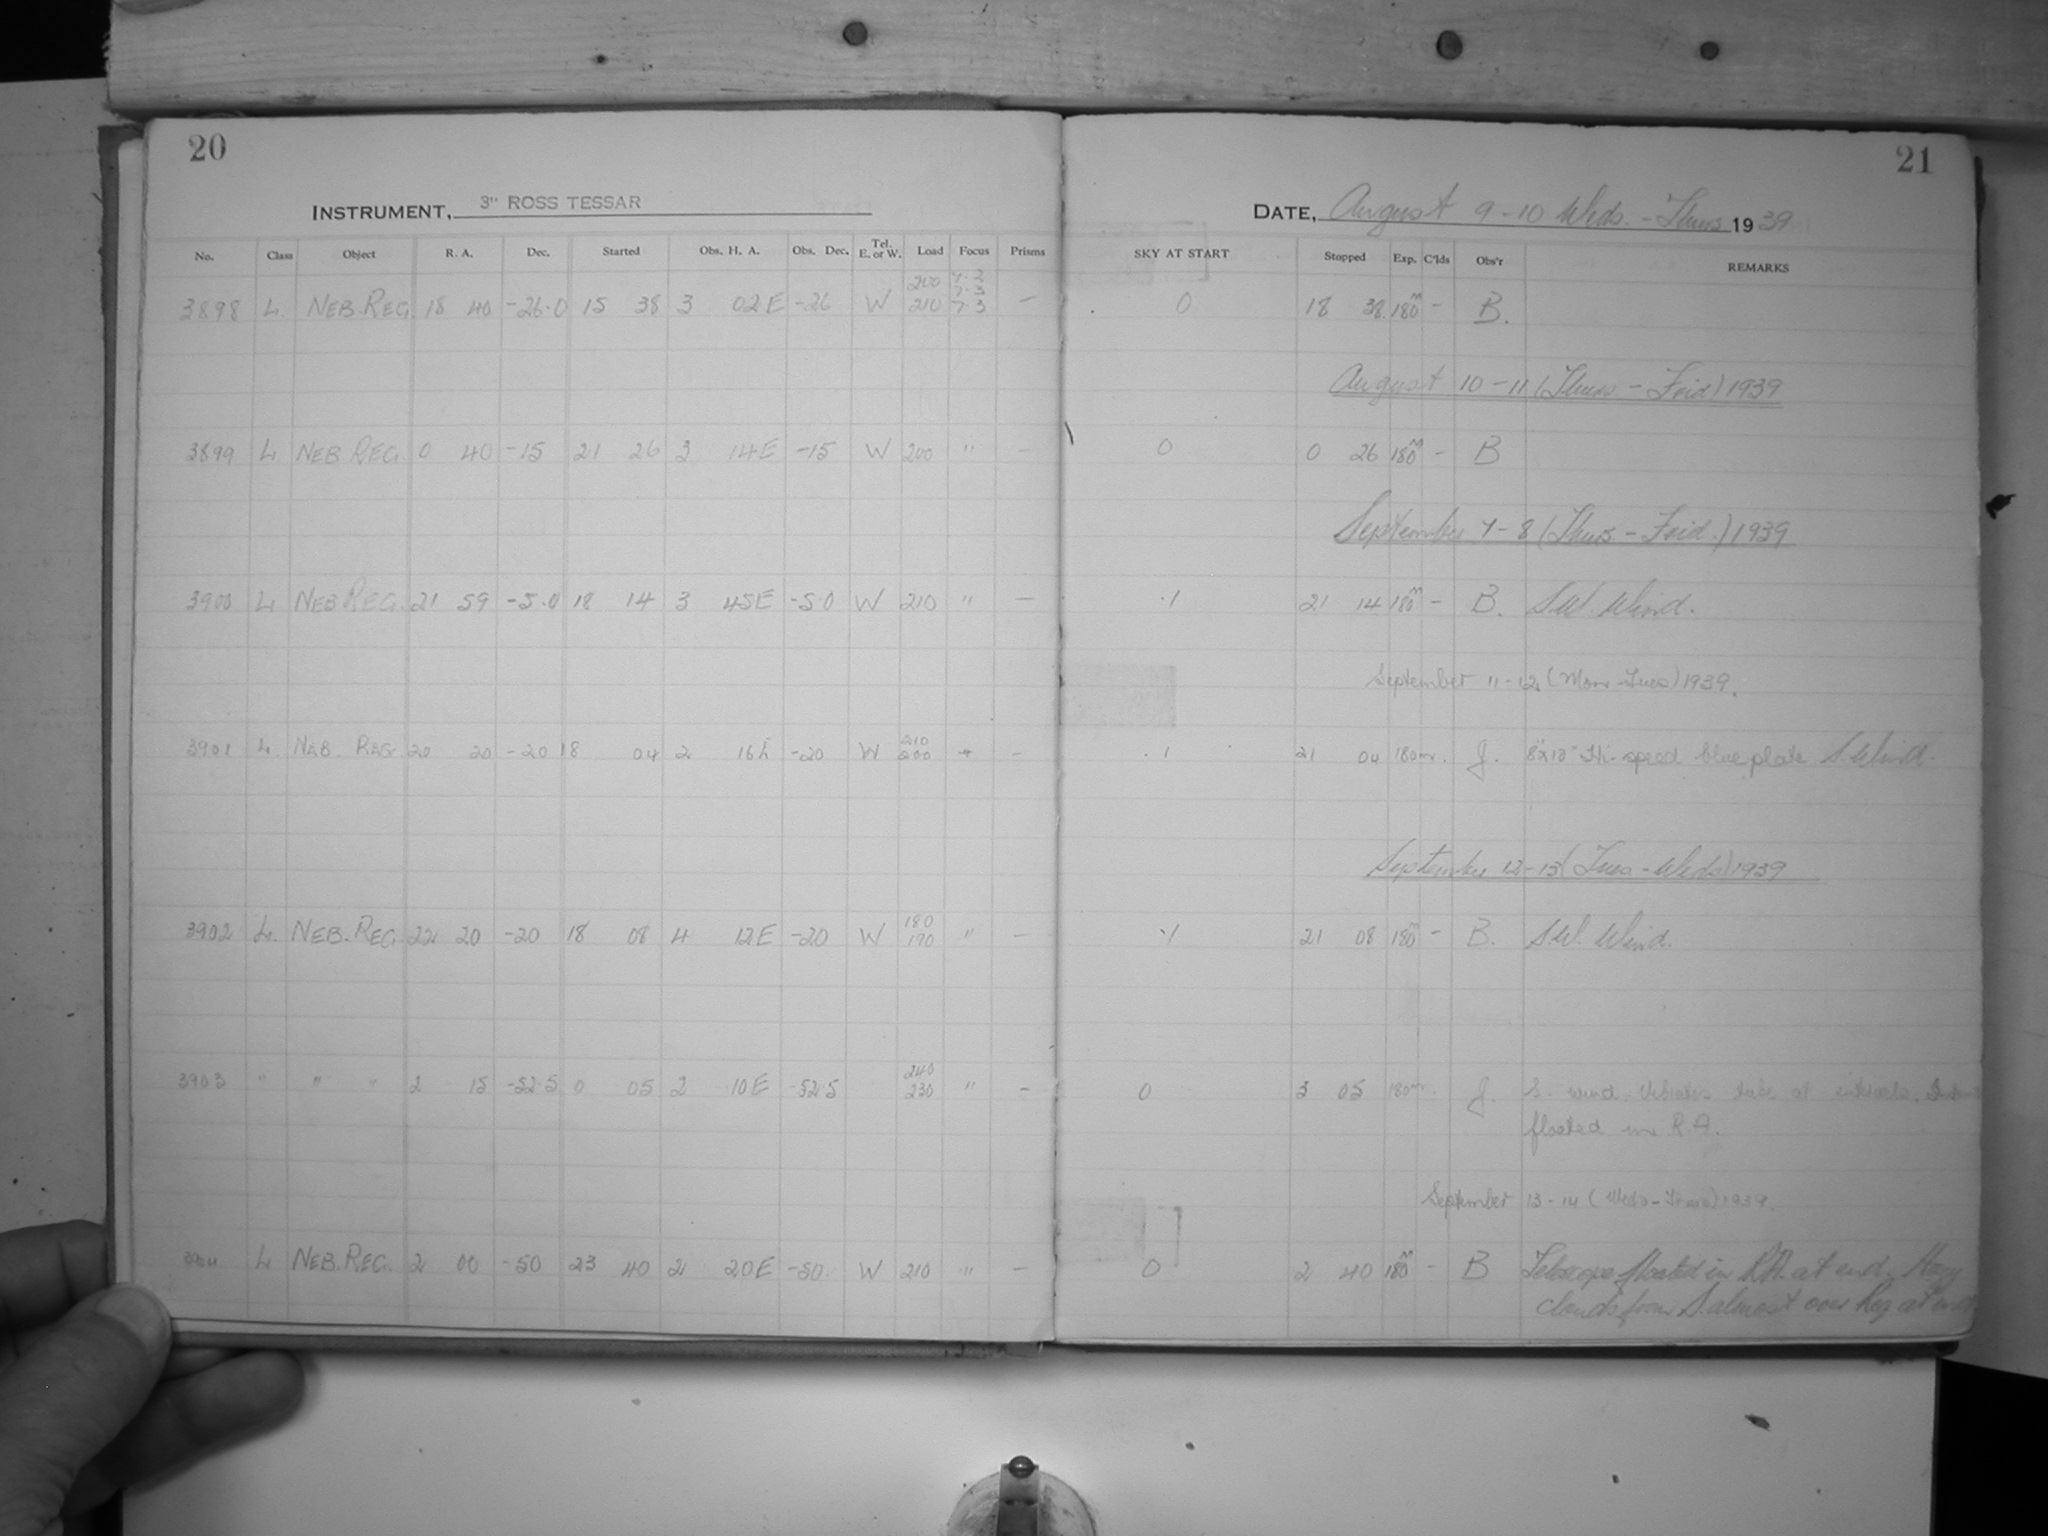 20
21
INSTRUMENT, 3" ROSS TESSAR
DATE, August 9-10 Weds.-Thurs 1939
No. Class Object R. A. Dec. Started Obs. H. A. Obs. Dec. Tel. E. or W. Load Focus Prisms SKY AT START Stopped Exp. C'lds Obs'r REMARKS
200 7.2
7.3
3898 L. NEB. REG. 18 40 -26.0 15 38 3 02E -26 W 210 7.3 — 0 18 38 180m - B.
August 10-11 (Thurs - Frid) 1939
3899 L NEB REG. 0 40 -15 21 26 3 14E -15 W 200 " — 0 0 26 180m - B
September 7-8 (Thurs. - Frid.) 1939
3900 L NEB REG. 21 59 -5.0 18 14 3 45E -5.0 W 210 " — .1 21 14 180m - B. S.W. Wind.
September 11-12 (Mon-Tues) 1939.
210
3901 L. NEB REG. 20 20 -20 18 04 2 16E -20 W 200 - .1 21 04 180m. J. 8"x10" Hi-speed blue plate S. Wind.
September 12-13 (Tues - Weds) 1939
180
3902 L. NEB. REG. 22 20 -20 18 08 4 12E -20 W 190 " — .1 21 08 180m - B. S.W. Wind.
240
3903 " " " 2 15 -52.5 0 05 2 10E -52.5 230 " - 0 3 05 180m. J. S. wind. Vibrates tube at intervals.
floated in R.A.
September 13-14 (Weds-Thurs) 1939.
3904 L NEB. REG. 2 00 -50 23 40 2 20E -50. W 210 " — 0 2 40 180m - B Telescope floated in R.A. at end.
clouds from S. almost over Reg at end